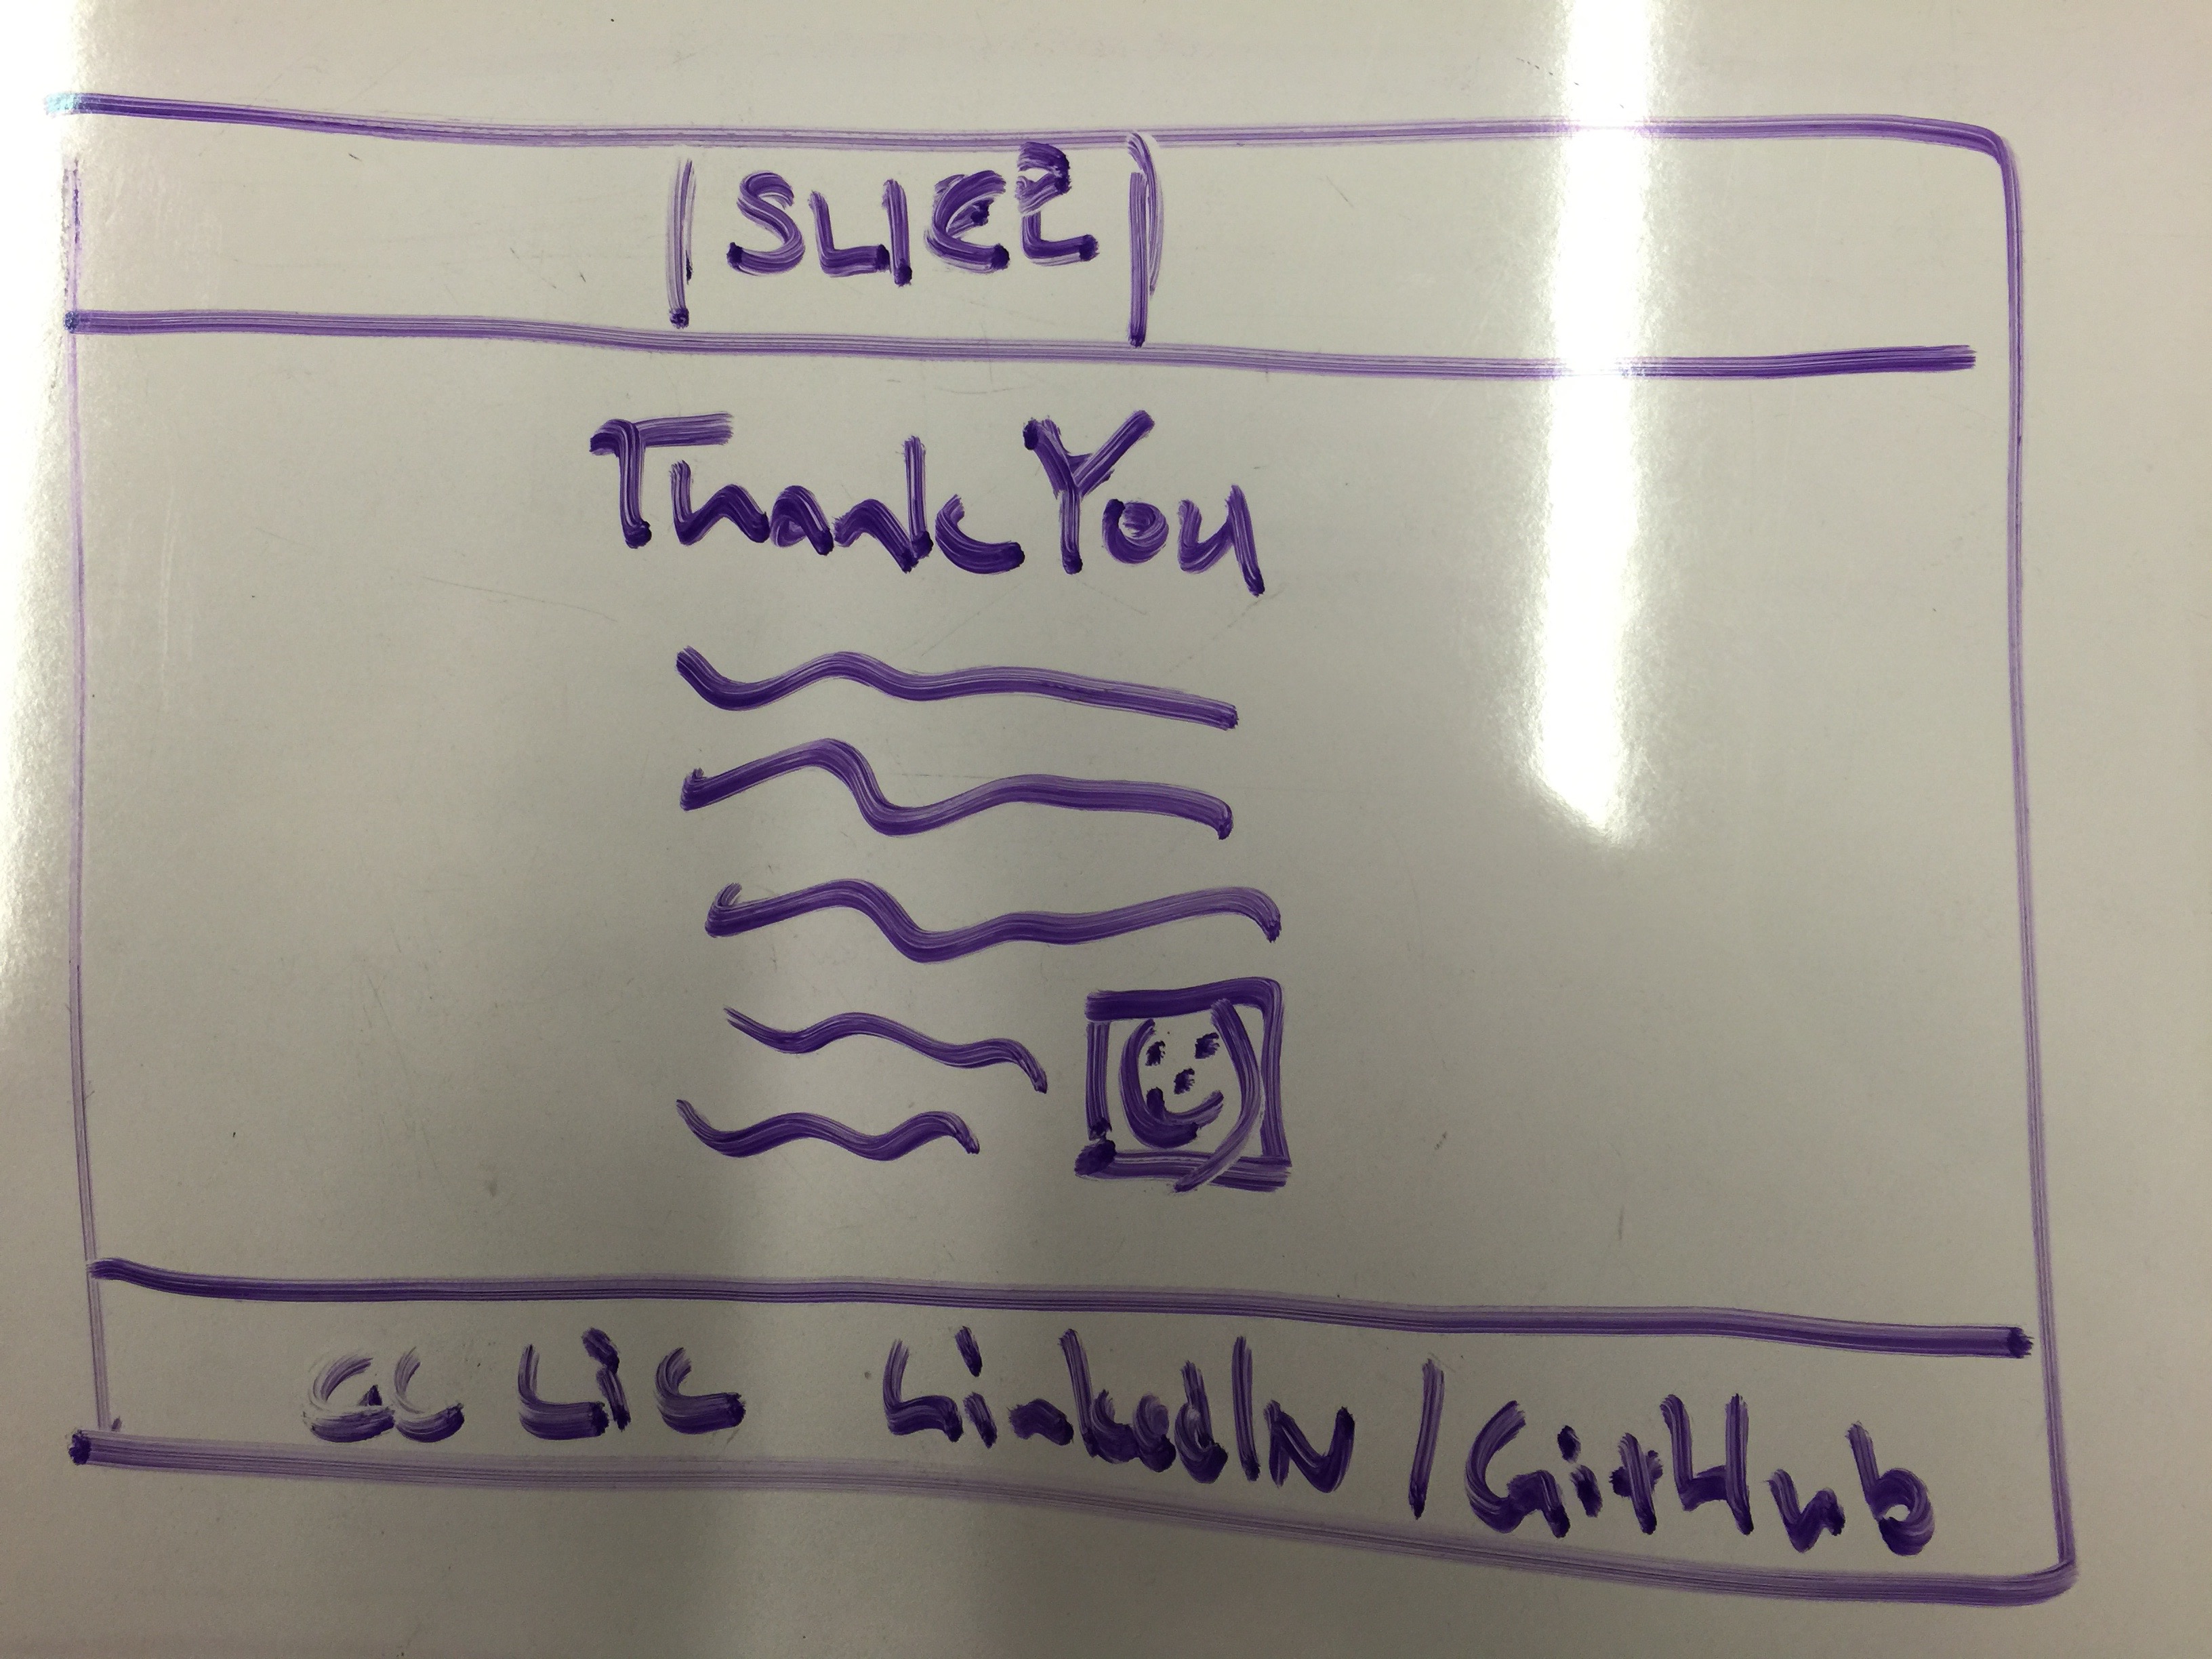 SLICE
Thank You
CC Lic LinkedIN / GitHub